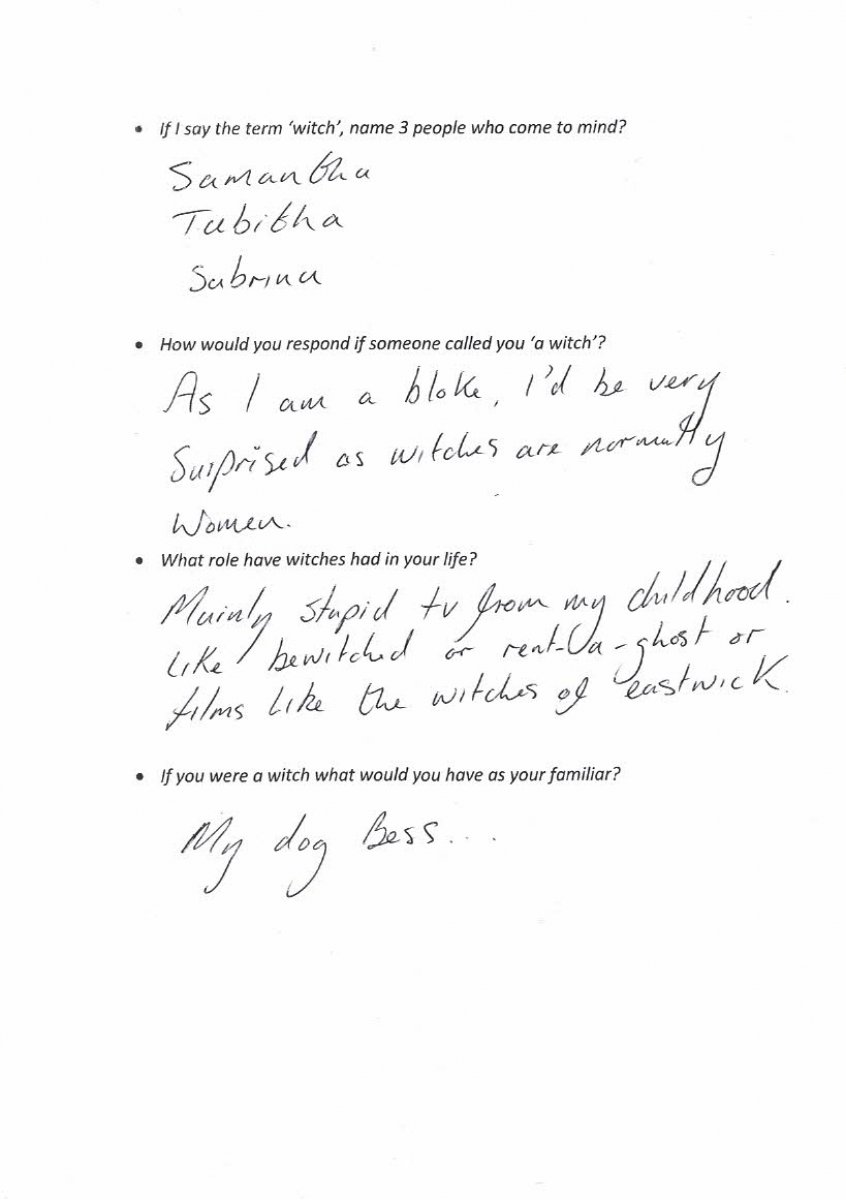 • If I say the term ‘witch’, name 3 people who come to mind?
Samantha
Tabitha
Sabrina
• How would you respond if someone called you ‘a witch’?
As I am a bloke, I'd be very
Surprised as witches are normally
Women.
• What role have witches had in your life?
Mainly stupid tv from my childhood.
Like bewitched or rent-a-ghost or
films like the witches of eastwick.
• If you were a witch what would you have as your familiar?
My dog Bess...